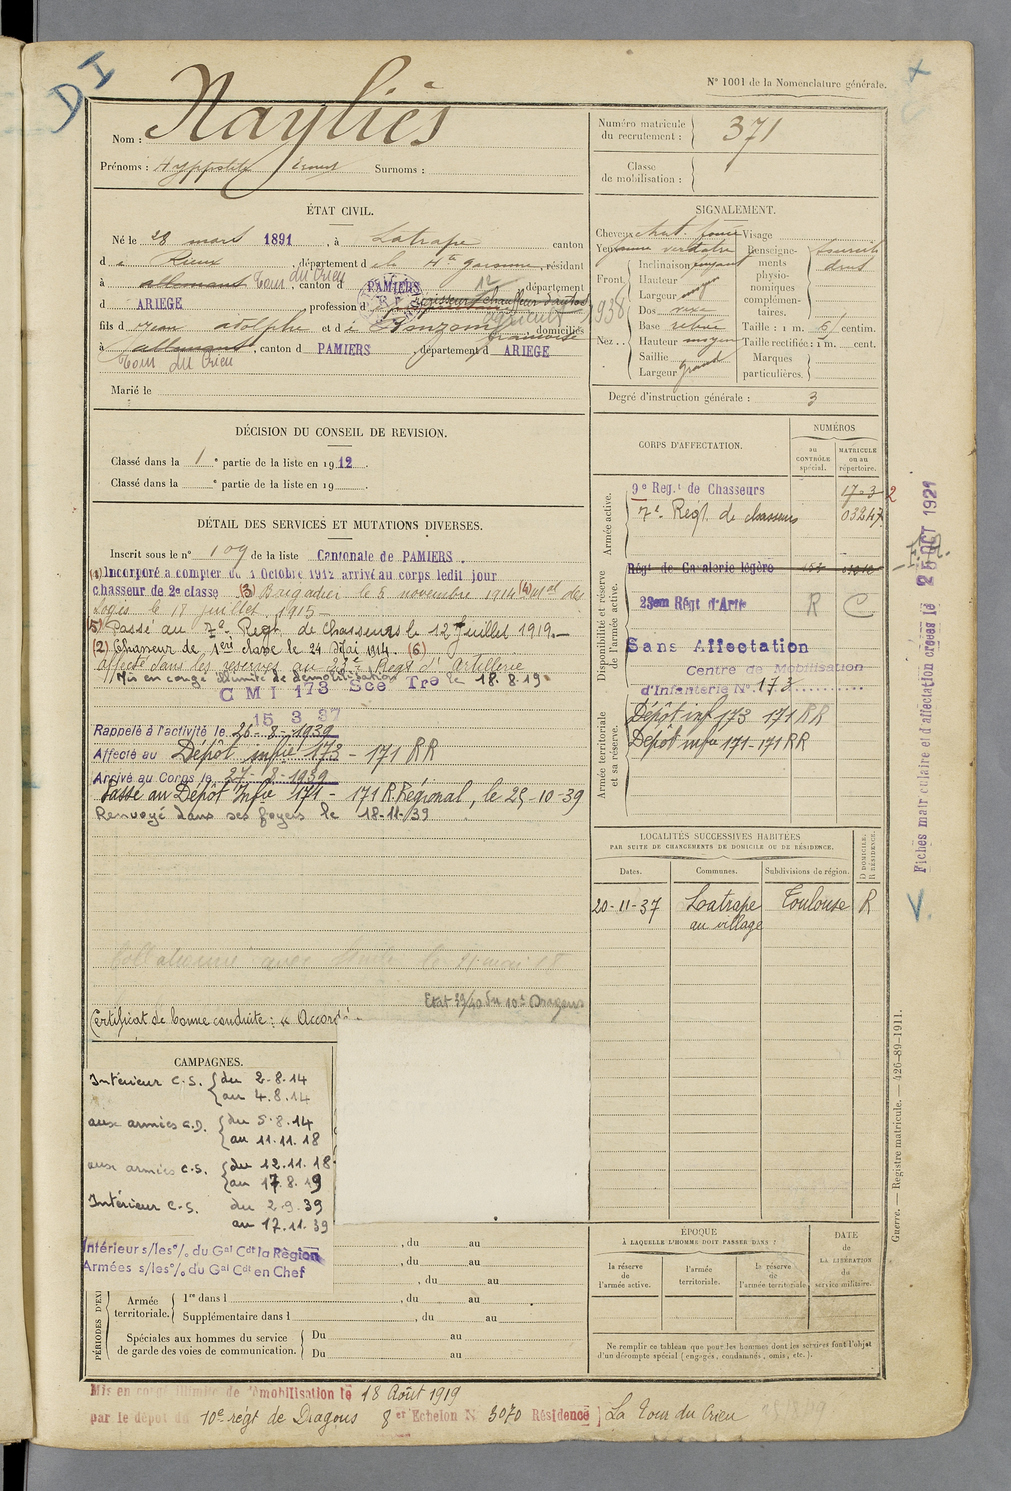 DI
N° 1001 de la Nomenclature générale.
Nom : Nayliès
Prénoms : Hyppolite Ernest Surnoms :
Numéro matricule du recrutement : 371
Classe de mobilisation :
ÉTAT CIVIL.
Né le 28 mars 1891, à Latrape canton
d e Rieux, département d e la Hte Garonne, résidant
à allemans Tour du Crieu, canton d PAMIERS, département
d ARIEGE profession d chauffeur d'autos
fils d e Jean Adolphe et d e domiciliés
à allemans, canton d PAMIERS, département d ARIEGE
Tour du Crieu
Marié le
SIGNALEMENT.
Cheveux chat. foncé Visage
Yeux verdatre
Front Inclinaison moyen
Hauteur
Largeur moyen
Nez Dos
Base
Hauteur moyen
Saillie
Largeur grand
Renseignements physionomiques complémentaires.
sourcils
Taille : 1 m. 61 centim.
Taille rectifiée : 1 m. cent.
Marques particulières.
Degré d'instruction générale : 3
DÉCISION DU CONSEIL DE REVISION.
Classé dans la 1e partie de la liste en 1912.
Classé dans la e partie de la liste en 19
DÉTAIL DES SERVICES ET MUTATIONS DIVERSES.
Inscrit sous le n° 109 de la liste Cantonale de PAMIERS.
(1) Incorporé à compter du 1 Octobre 1912 arrivé au corps ledit jour
chasseur de 2e classe (3) Brigadier le 5 novembre 1914 (4) Mal des
Logis le 18 juillet 1915
(5) Passé au 7e Régt de Chasseurs le 12 Juillet 1919.
(2) Chasseur de 1ère classe le 24 Mai 1914. (6)
affecté dans les réserves au 23e Régt d'Artillerie
Mis en congé illimité de démobilisation le 18.8.19
C M I 173 Sce Tré
15 3 37
Rappelé à l'activité le 26-8-1939
Affecté au Dépôt infie 173 - 171 RR
Arrivé au Corps le 27-8-1939
Passé au Dépôt Infie 171 - 171 R. Régional, le 25-10-39
Renvoyé dans ses foyers le 18-11-39
Etat 39/40 du 10e Dragons
Certificat de bonne conduite : « Accordé
CORPS D'AFFECTATION.
NUMÉROS
au CONTRÔLE spécial.
MATRICULE ou au répertoire.
Armée active.
9e Regt de Chasseurs
7e Régt de chasseurs 03247
Disponibilité et réserve de l'armée active.
Régt de Cavalerie légère
23em Régt d'Artie R C
Sans Affectation
Centre de Mobilisation
d'Infanterie N° 173
Armée territoriale et sa réserve.
Dépôt inf 173 171 RR
Dépôt infie 171-171 RR
LOCALITÉS SUCCESSIVES HABITÉES
PAR SUITE DE CHANGEMENTS DE DOMICILE OU DE RÉSIDENCE.
Dates. Communes. Subdivisions de région. D DOMICILE. R RÉSIDENCE.
20-11-37 Latrape au village Toulouse R
CAMPAGNES.
Intérieur C.S. du 2.8.14
au 4.8.14
aux armées C.D. du 5.8.14
au 11.11.18
aux armées C.S. du 12.11.18
au 17.8.19
Intérieur C.S. du 2-9-39
au 17.11.39
Intérieur s/les % du Gal Cdt la Région
Armées s/les % du Gal Cdt en Chef
, du au
, du au
, du au
Armée territoriale. 1re dans l , du au
Supplémentaire dans l , du au
Spéciales aux hommes du service de garde des voies de communication. Du au
Du au
ÉPOQUE
À LAQUELLE L'HOMME DOIT PASSER DANS :
la réserve de l'armée active.
l'armée territoriale.
la réserve de l'armée territoriale.
DATE de LA LIBÉRATION du service militaire.
Ne remplir ce tableau que pour les hommes dont les services font l'objet
d'un décompte spécial (engagés, condamnés, omis, etc.).
Mis en congé illimité de démobilisation le 18 Août 1919
par le dépôt du 10e régt de Dragons 8er Echelon N 3070 Résidence La Tour du Crieu
Fiches matriculaire et d'affectation créées le 25 OCT 1921
Guerre. — Registre matricule. — 426-89-1911.